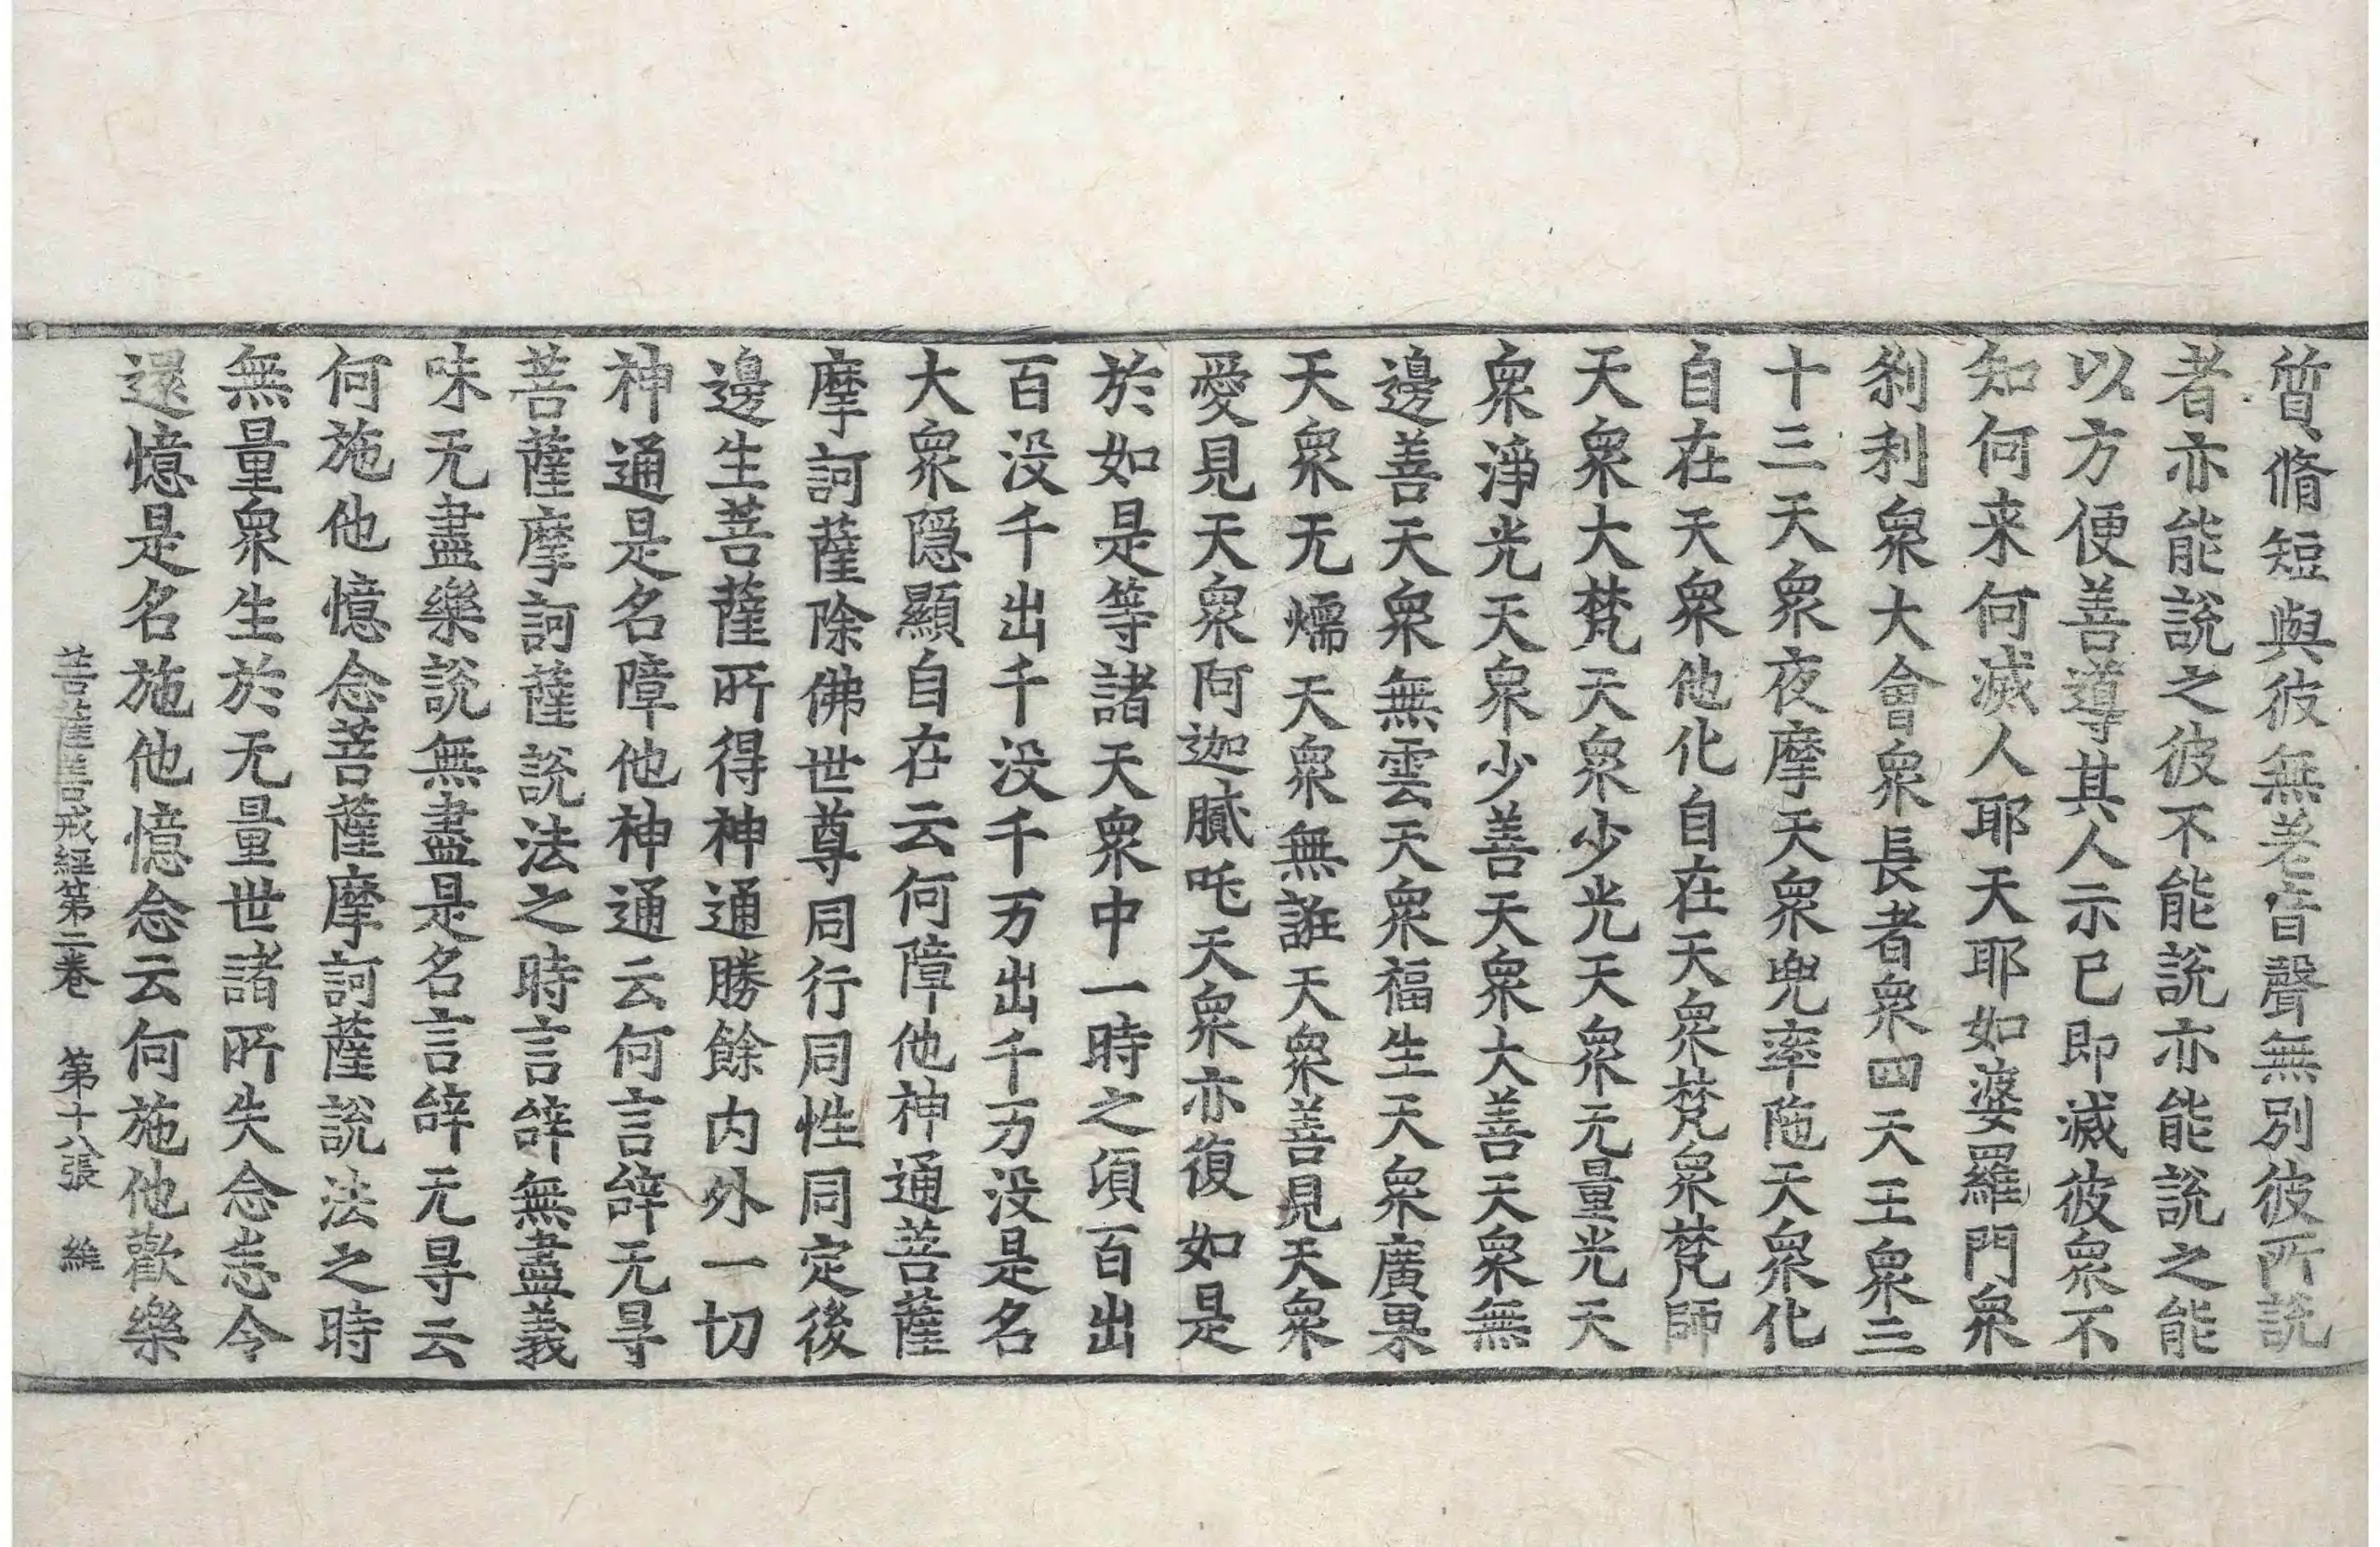 質脩短與彼無差音聲無別彼所說
者亦能說之彼不能說亦能說之能
以方便善導其人示已即滅彼衆不
知何来何滅人耶天耶如婆羅門衆
刹利衆大會衆長者衆四天王衆三
十三天衆夜摩天衆兜率陁天衆化
自在天衆他化自在天衆梵衆梵師
天衆大梵天衆少光天衆无量光天
衆淨光天衆少善天衆大善天衆無
邊善天衆無雲天衆福生天衆廣果
天衆无㷼天衆無誑天衆善見天衆
愛見天衆阿迦膩吒天衆亦復如是
於如是等諸天衆中一時之須百出
百没千出千没千万出千万没是名
大衆隱顯自在云何障他神通菩薩
摩訶薩除佛世尊同行同性同定後
邊生菩薩所得神通勝餘内外一切
神通是名障他神通云何言辞无㝵
菩薩摩訶薩說法之時言辞無盡義
味无盡樂說無盡是名言辞无㝵云
何施他憶念菩薩摩訶薩說法之時
無量衆生於无量世諸所失念忘令
還憶是名施他憶念云何施他歡樂
菩薩善戒經第二卷 第十八張 維